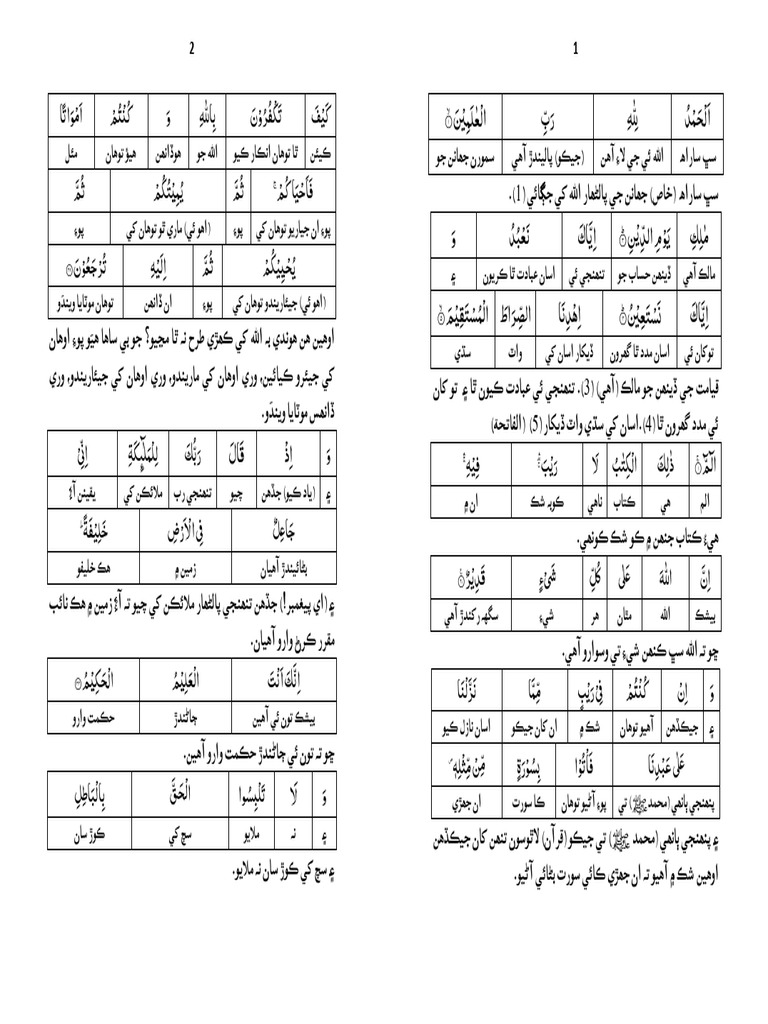 1
اَلْحَمْدُ لِلّٰهِ رَبِّ الْعٰلَمِيْنَۙ
سڀ ساراھ الله ئي جي لاءِ آهن (جيڪو) پاليندڙ آهي سمورن جهانن جو
سڀ ساراھ (خاص) جهانن جي پالڻهار الله کي جڳائي (1).
مٰلِكِ يَوْمِ الدِّيْنِؕ اِيَّاكَ نَعْبُدُ وَ
مالڪ آهي ڏينهن حساب جو تنهنجي ئي اسان عبادت ٿا ڪريون ۽
اِيَّاكَ نَسْتَعِيْنُؕ اِهْدِنَا الصِّرَاطَ الْمُسْتَقِيْمَۙ
تو کان ئي اسان مدد ٿا گهرون ڏيکار اسان کي واٽ سڌي
قيامت جي ڏينهن جو مالڪ (آهي) (3). تنهنجي ئي عبادت ڪيون ٿا ۽ تو کان
ئي مدد گهرون ٿا (4). اسان کي سڌي واٽ ڏيکار (5) (الفاتحة)
الٓمّٓۚ ذٰلِكَ الْكِتٰبُ لَا رَيْبَۛ ۚ فِيْهِۛ ۚ
الم هي ڪتاب ناهي ڪوبہ شڪ ان ۾
هيءُ ڪتاب جنهن ۾ ڪو شڪ ڪونهي.
اِنَّ اللّٰهَ عَلٰى كُلِّ شَىْءٍ قَدِيْرٌؒ
بيشڪ الله مٿان هر شيءِ سگهہ رکندڙ آهي
ڇو تہ الله سڀ ڪنهن شيءِ تي وسوارو آهي.
وَ اِنْ كُنْتُمْ فِىْ رَيْبٍ مِّمَّا نَزَّلْنَا
۽ جيڪڏهن آهيو توهان شڪ ۾ ان کان جيڪو اسان نازل ڪيو
عَلٰى عَبْدِنَا فَاْتُوْا بِسُوْرَةٍ مِّنْ مِّثْلِهٖ
پنهنجي ٻانهي (محمد ﷺ) تي پوءِ آڻيو توهان ڪا سورت ان جهڙي
۽ پنهنجي ٻانهي (محمد ﷺ) تي جيڪو (قرآن) لاٿوسون تنهن کان جيڪڏهن
اوهين شڪ ۾ آهيو تہ ان جهڙي ڪائي سورت بڻائي آڻيو.
2
كَيْفَ تَكْفُرُوْنَ بِاللّٰهِ وَ كُنْتُمْ اَمْوَاتًا
ڪيئن ٿا توهان انڪار ڪيو الله جو هوڏانهن هيؤ توهان مئل
فَاَحْيَاكُمْۚ ثُمَّ يُمِيْتُكُمْ ثُمَّ
پوءِ ان جياريو توهان کي پوءِ (اهو ئي) ماري ٿو توهان کي پوءِ
يُحْيِيْكُمْ ثُمَّ اِلَيْهِ تُرْجَعُوْنَ
(اهو ئي) جيئاريندو توهان کي پوءِ ان ڏانهن توهان موٽايا ويندو
اوهين هن هوندي بہ الله کي ڪهڙي طرح نہ ٿا مڃيو؟ جو بي ساها هيَو پوءِ اوهان
کي جيئرو ڪيائين، وري اوهان کي ماريندو، وري اوهان کي جيئاريندو، وري
ڏانهس موٽايا ويندَو.
وَ اِذْ قَالَ رَبُّكَ لِلْمَلٰٓئِكَةِ اِنِّىْ
۽ (ياد ڪيو) جڏهن چيو تنهنجي رب ملائڪن کي يقينن آءٌ
جَاعِلٌ فِى الْاَرْضِ خَلِيْفَةًؕ
بڻائيندڙ آهيان زمين ۾ هڪ خليفو
۽ (اي پيغمبر!) جڏهن تنهنجي پالڻهار ملائڪن کي چيو تہ آءٌ زمين ۾ هڪ نائب
مقرر ڪرڻ وارو آهيان.
اِنَّكَ اَنْتَ الْعَلِيْمُ الْحَكِيْمُ
بيشڪ تون ئي آهين ڄاڻندڙ حڪمت وارو
ڇو تہ تون ئي ڄاڻندڙ حڪمت وارو آهين.
وَ لَا تَلْبِسُوا الْحَقَّ بِالْبَاطِلِ
۽ نہ ملايو سچ کي ڪوڙ سان
۽ سچ کي ڪوڙ سان نہ ملايو.